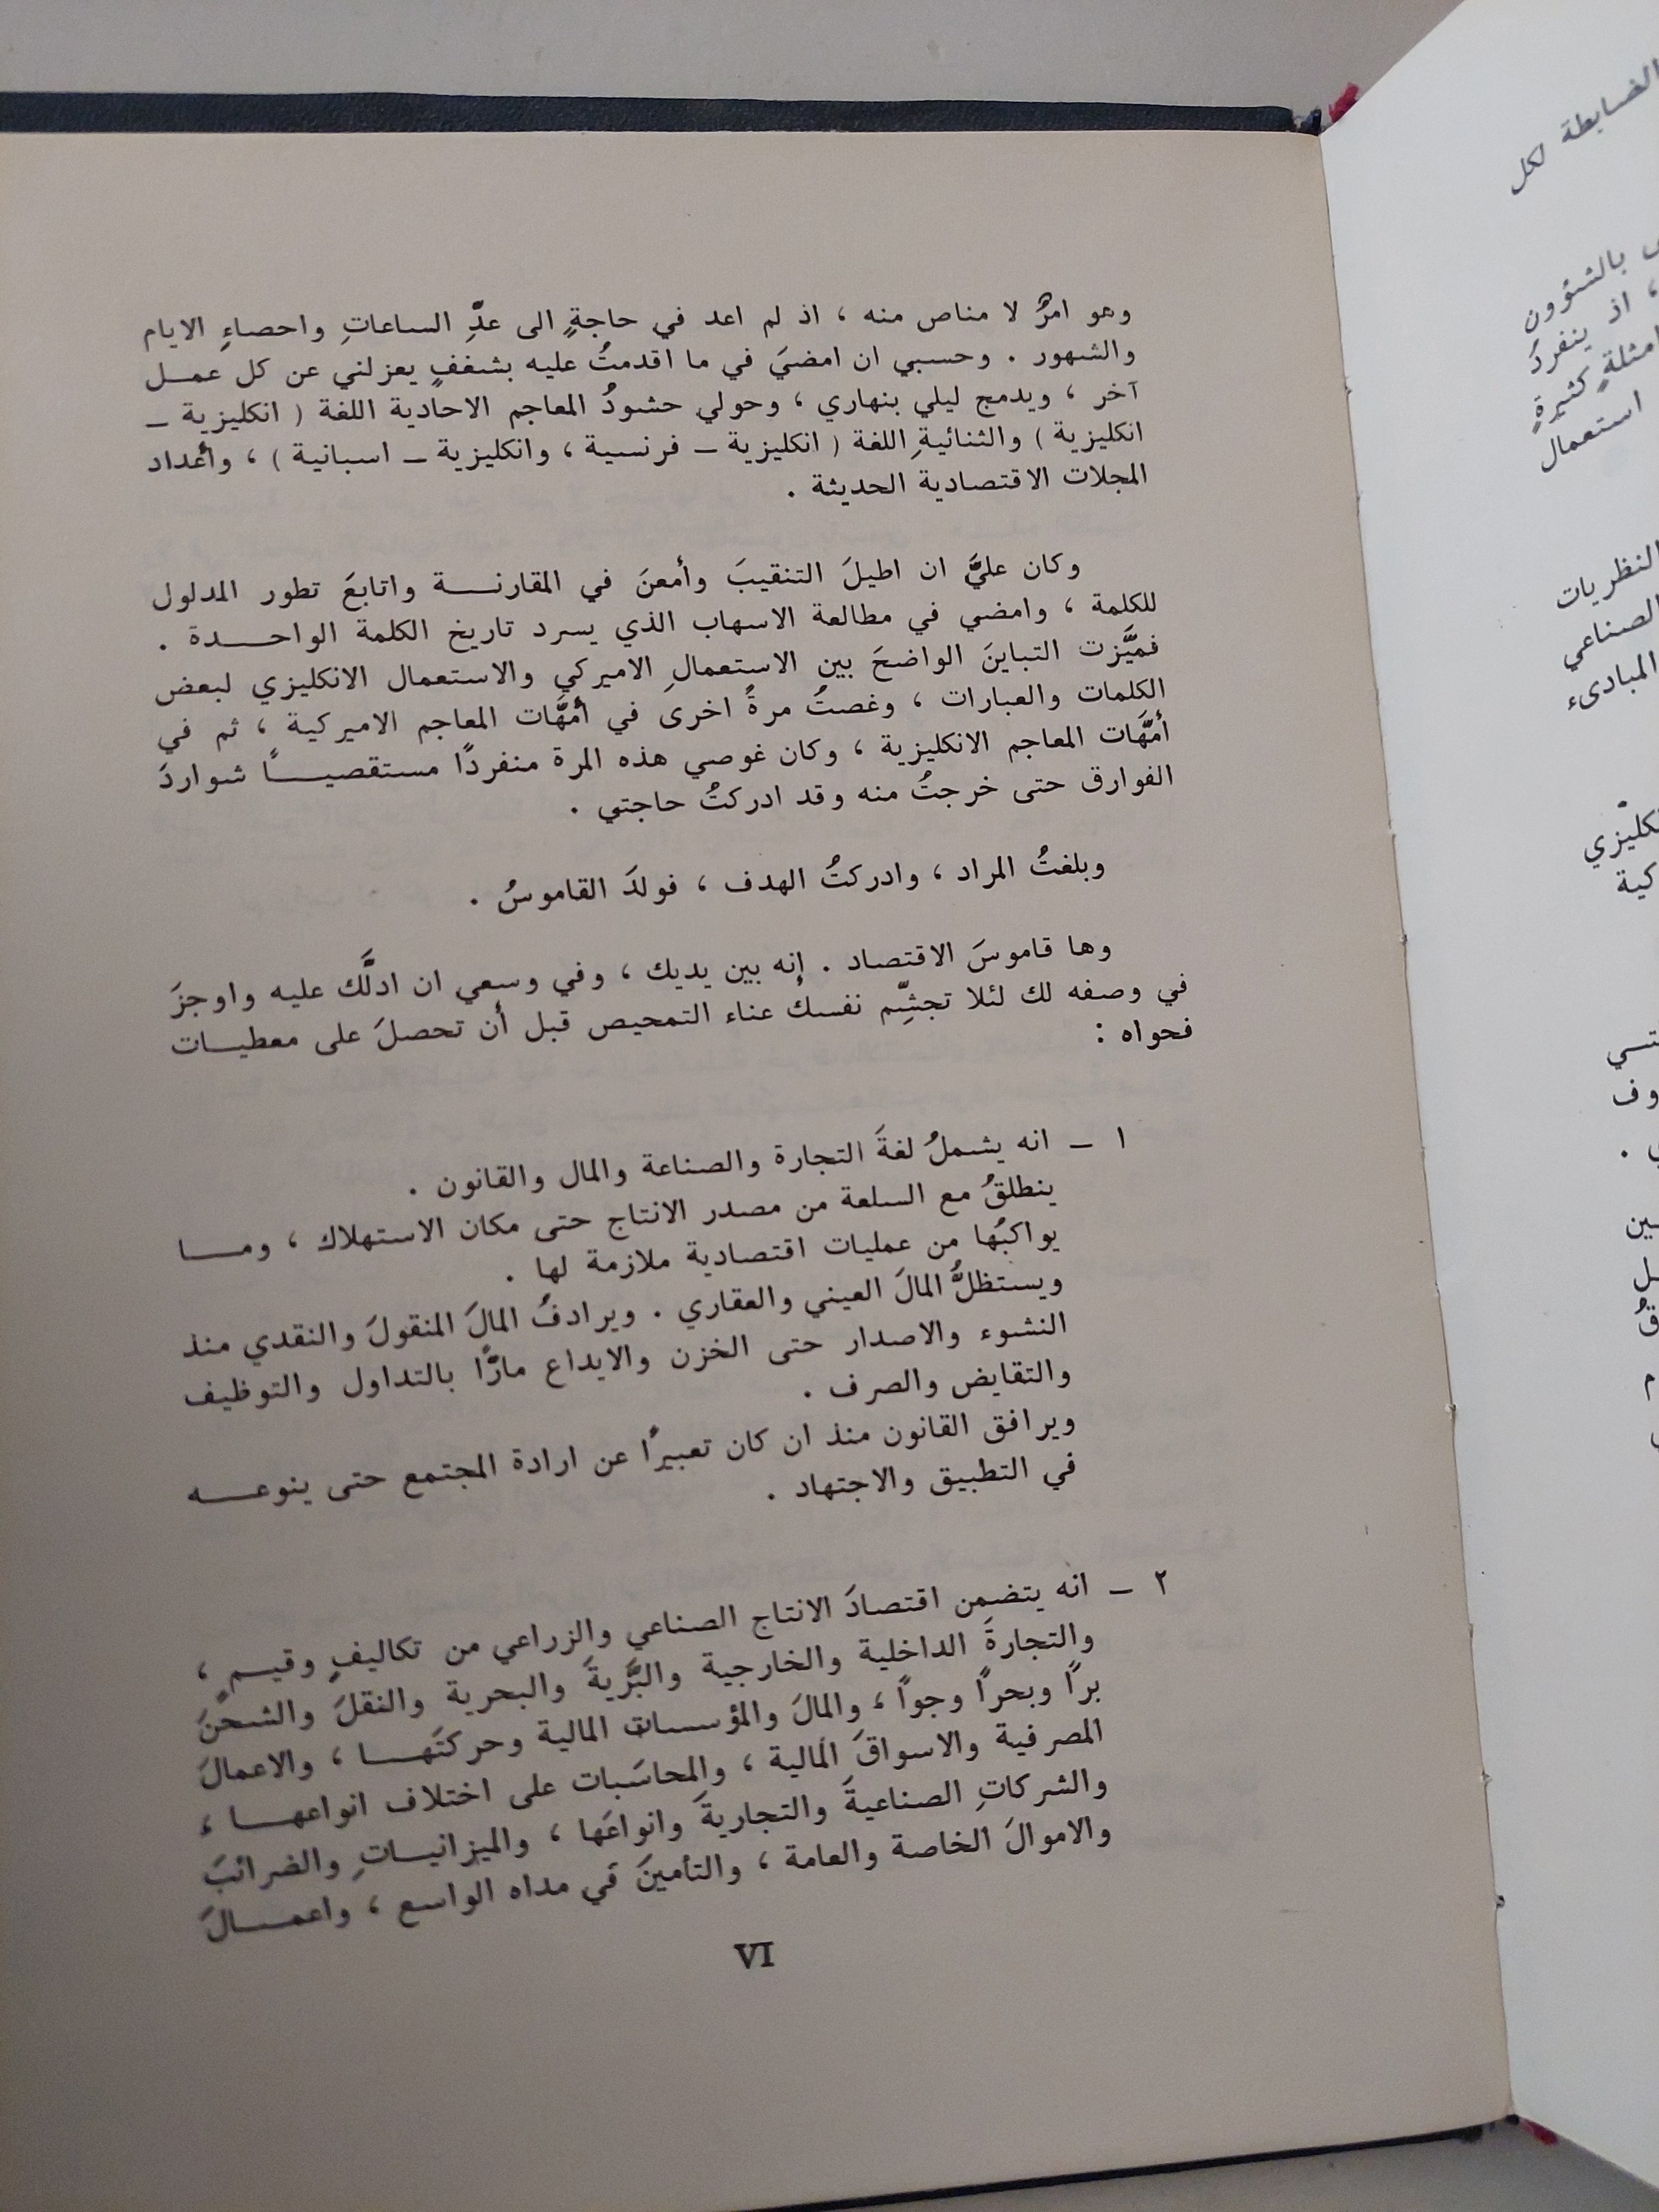 وهو امرٌ لا مناص منه ، اذ لم اعد في حاجةٍ الى عدِّ الساعاتِ واحصاءِ الايام
والشهور . وحسبي ان امضيَ في ما اقدمتُ عليه بشغفٍ يعزلني عن كل عمــل
آخر ، ويدمج ليلي بنهاري ، وحولي حشودُ المعاجم الاحادية اللغة ( انكليزية ــ
انكليزية ) والثنائيةِ اللغة ( انكليزية ــ فرنسية ، وانكليزية ــ اسبانية ) ، وأعداد
المجلات الاقتصادية الحديثة .
وكان عليَّ ان اطيلَ التنقيبَ وأمعنَ في المقارنــة واتابعَ تطور المدلول
للكلمة ، وامضي في مطالعة الاسهاب الذي يسرد تاريخ الكلمة الواحــدة .
فميَّزت التباينَ الواضحَ بين الاستعمالِ الاميركي والاستعمال الانكليزي لبعض
الكلمات والعبارات ، وغصتُ مرةً اخرى في أمَّهَات المعاجم الاميركية ، ثم في
أمَّهَات المعاجم الانكليزية ، وكان غوصي هذه المرة منفردًا مستقصيــاً شواردَ
الفوارق حتى خرجتُ منه وقد ادركتُ حاجتي .
وبلغتُ المراد ، وادركتُ الهدف ، فولدَ القاموسُ .
وها قاموسَ الاقتصاد . إنه بين يديك ، وفي وسعي ان ادلَّك عليه واوجزَ
في وصفه لك لئلا تجشِّم نفسك عناء التمحيص قبل أن تحصلَ على معطيــات
فحواه :
١ ــ انه يشملُ لغةَ التجارة والصناعة والمال والقانون .
ينطلقُ مع السلعة من مصدر الانتاج حتى مكان الاستهلاك ، ومــا
يواكبُها من عمليات اقتصادية ملازمة لها .
ويستظلُّ المالَ العيني والعقاري . ويرادفُ المالَ المنقولَ والنقدي منذ
النشوء والاصدار حتى الخزن والايداع مارًّا بالتداول والتوظيف
والتقايض والصرف .
ويرافق القانون منذ ان كان تعبيرًا عن ارادة المجتمع حتى ينوعــه
في التطبيق والاجتهاد .
٢ ــ انه يتضمن اقتصادَ الانتاج الصناعي والزراعي من تكاليفٍ وقيــمٍ ،
والتجارةَ الداخلية والخارجية والبَّريةَ والبحرية والنقلَ والشحنَ
براً وبحراً وجواً ، والمالَ والمؤسسات المالية وحركتَهــا ، والاعمالَ
المصرفية والاسواقَ المالية ، والمحاسَبات على اختلاف انواعهــا ،
والشركاتِ الصناعيةَ والتجاريةَ وانواعَها ، والميزانيــاتِ والضرائبَ
والاموالَ الخاصة والعامة ، والتأمينَ في مداه الواسع ، واعمــالَ
VI
الضابطة لكل
بالشئوون
، اذ ينفردَ
امثلةٍ كثيرةٍ
استعمال
النظريات
الصناعي
المبادىء